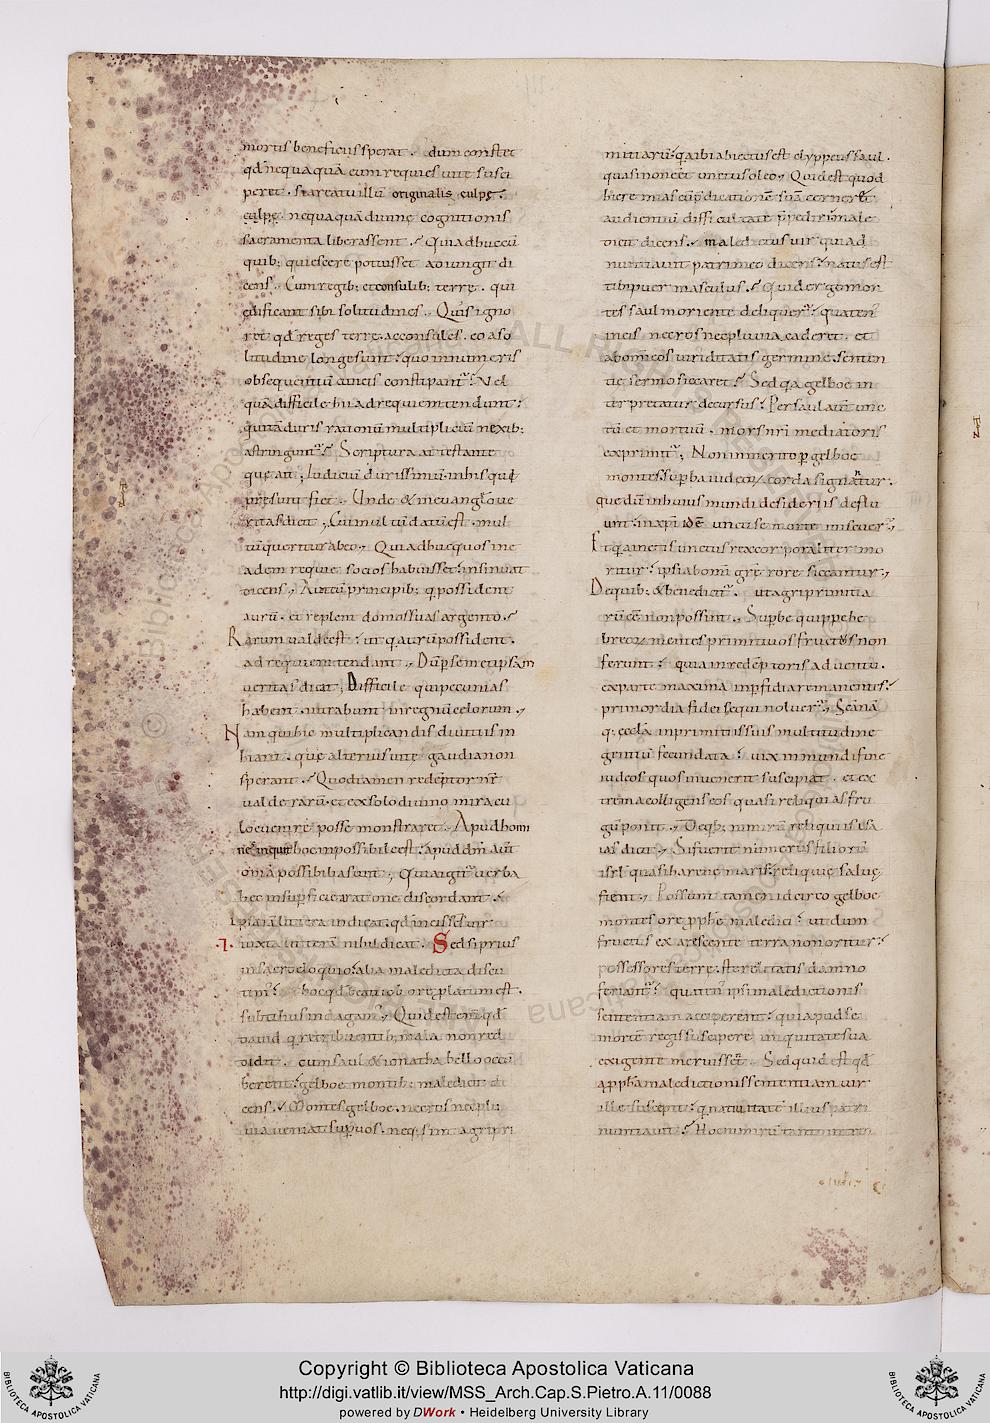 mortis beneficiis sperat. dum constet
qd nequaquā eum requies uitę susci
peret. si areatu illū originalis culpę.
culpę. nequaquā diuinę cognitionis
sacramenta liberassent. Qui adhuc cū
quib; quiescere potuisset adiungit di
cens. Cum regib; et consulib; terrę. qui
ędificant sibi solitudines. Quis igno
ret qd reges terrę. ac consules. eo a so
litudine longe sunt. quo innumeris
obsequentiū cuneis constipant. Vel
quā difficile hii ad requiem tendunt.
qui tā duris rationū multipliciū nexib;
astringunt. Scriptura attestante
que ait; Iudiciū durissimū in his qui
pręsunt fiet. Unde & in euangl̄o ue
ritas dicit; Cui multū datū est. mul
tū queritur ab eo. Qui adhuc quos in e
adem requie socios habuisset. insinuat
dicens. Aut cū principib; q possident
aurū. et replent domos suas argento.
Rarum ualde est. ut q aurū possident.
ad requiem tendant. Dū p semetipsam
ueritas dicat; Difficile qui pecunias
habent. intrabunt in regnū celorum.
Nam qui hic multiplicandis diuitiis in
hiant. que alterius uite gaudia non
sperant. Quod tamen redēptor nr̄
ualde rarū. et ex solo diuino miracu
lo euenire posse monstraret. Apud homi
nes inquit hoc impossibile est. apud dm̄ aut
om̄a possibilia sunt. Quia igit uerba
hec in superficie a ratione discordant.
ipsa iā littera indicat. qd in eis scs uir
iuxta litterā nihil dicat. Sed si prius
in sacro eloquio. alia maledicta discu
tim. hoc qd beati iob ore platum est.
subtilius indagam. Quid est em̄ qd
dauid q retribuentib; mala non red
didit. cum saul & ionathas bello occū
berent. gelboe montib; maledicit di
cens. Montes gelboe. nec ros nec plu
uia ueniat sup uos. neq; sint agri pri
mitiarū. q a ibi abiectus est clyppeus saul.
quasi non eēt unctus oleo. Quid est quod
hieremias cū p̄dicationē suā cerneret
audientiū difficultate p̄pediri. male
dicit dicens. maledictus uir qui ad
nuntiauit patri meo dicens. natus est
tibi puer masculus. Quid ergo mon
tes saul moriente deliquer. quaten
in eis nec ros nec pluuia caderet. et
ab om̄i eos uiriditatis germine. senten
tię sermo siccaret. Sed q a gelboe in
terpretatur decursus. Per saul autē unc
tū et mortuū. mors nr̄i mediatoris
exprimit. Non inmerito p gelboe
montes superba iudeoꝝ corda signantur.
que dū in huius mundi desideriis deflu
unt. in xp̄i idē uncti se morte miscuer.
Et q a in eis unctus rex corporaliter mo
ritur. ipsi ab om̄i grę rore siccantur.
De quib; & bene dicit. ut agri primitia
rū eē non possint. Superbe quippe he
breoꝝ mentes primitiuos fructus non
ferunt. quia in redēptoris aduentu.
ex parte maxima in pfidia remanentes.
primordia fidei sequi noluer. Sc̄a nā
q; ecclā in primitiis suis multitudine
gentiū fecundata. uix in mundi fine
iudeos quos inuenerit suscipiat. et ex
trema colligens eos quasi reliquias fru
gū ponit. De qb; nimirū reliquiis isa
ias dicit. Si fuerit numerus filiorū
isrl quasi harena maris. reliquię saluę
fient. Possunt tamen idcirco gelboe
montes ore pphe maledici. ut dum
fructus exarescente terra non oritur.
possessores terrę. sterelitatis damno
feriant. quaten ipsi maledictionis
sententiam acciperent. qui apud se
mortē regis suscipere iniquitate sua
exigente meruissent. Sed quid est qd
a ppha maledictionis sententiam uir
ille suscepit. q natiuitatē illius patri
nuntiauit. Hoc nimirū tanto
Copyright © Biblioteca Apostolica Vaticana
http://digi.vatlib.it/view/MSS_Arch.Cap.S.Pietro.A.11/0088
powered by DWork • Heidelberg University Library
BIBLIOTECA APOSTOLICA VATICANA
BIBLIOTECA APOSTOLICA VATICANA